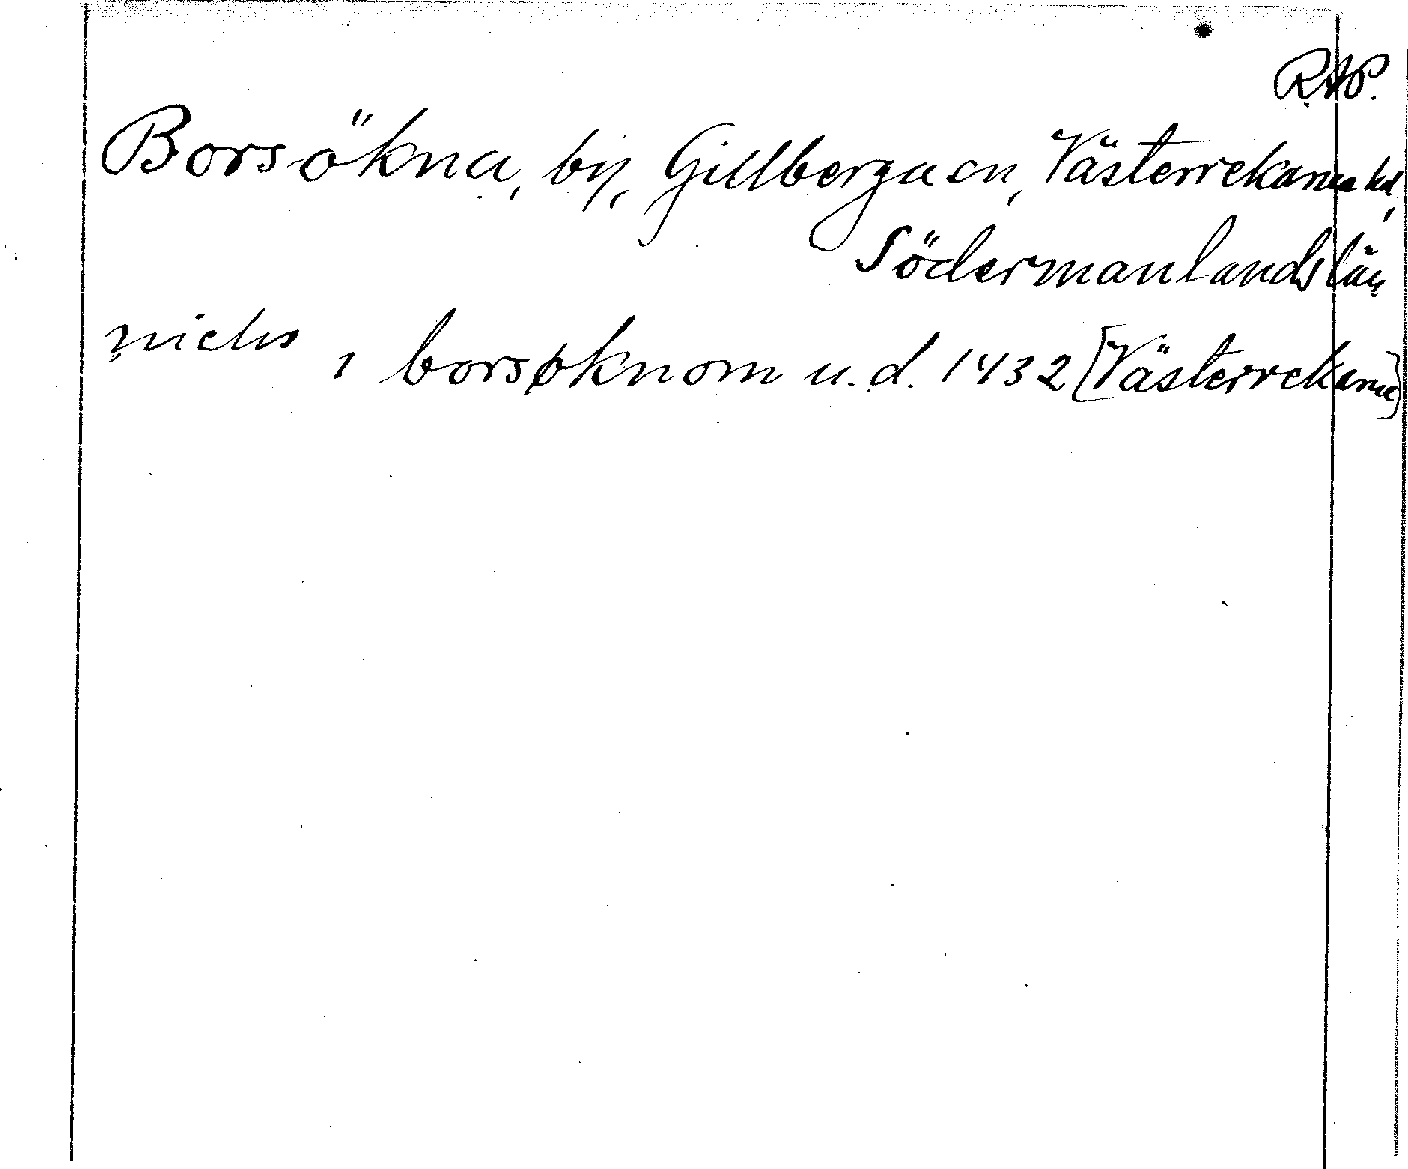 RAP.
Borsökna, by, Gillberga sn, Västerrekarne hd,
Södermanlands län
nichis
i borsøknom u.d. 1432 [Västerrekarne]